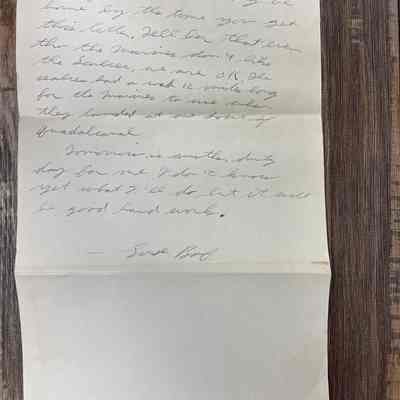 home by the time you get
this letter. Tell her that even
tho the Marines don't like
the Seabees, we are OK. The
seabees had a road 12 miles long
for the Marines to use when
they landed at one
Guadalcanal
Tomorrow is another duty
day for me I don't know
yet what I'll do but it will
be good hard work.
— Bob